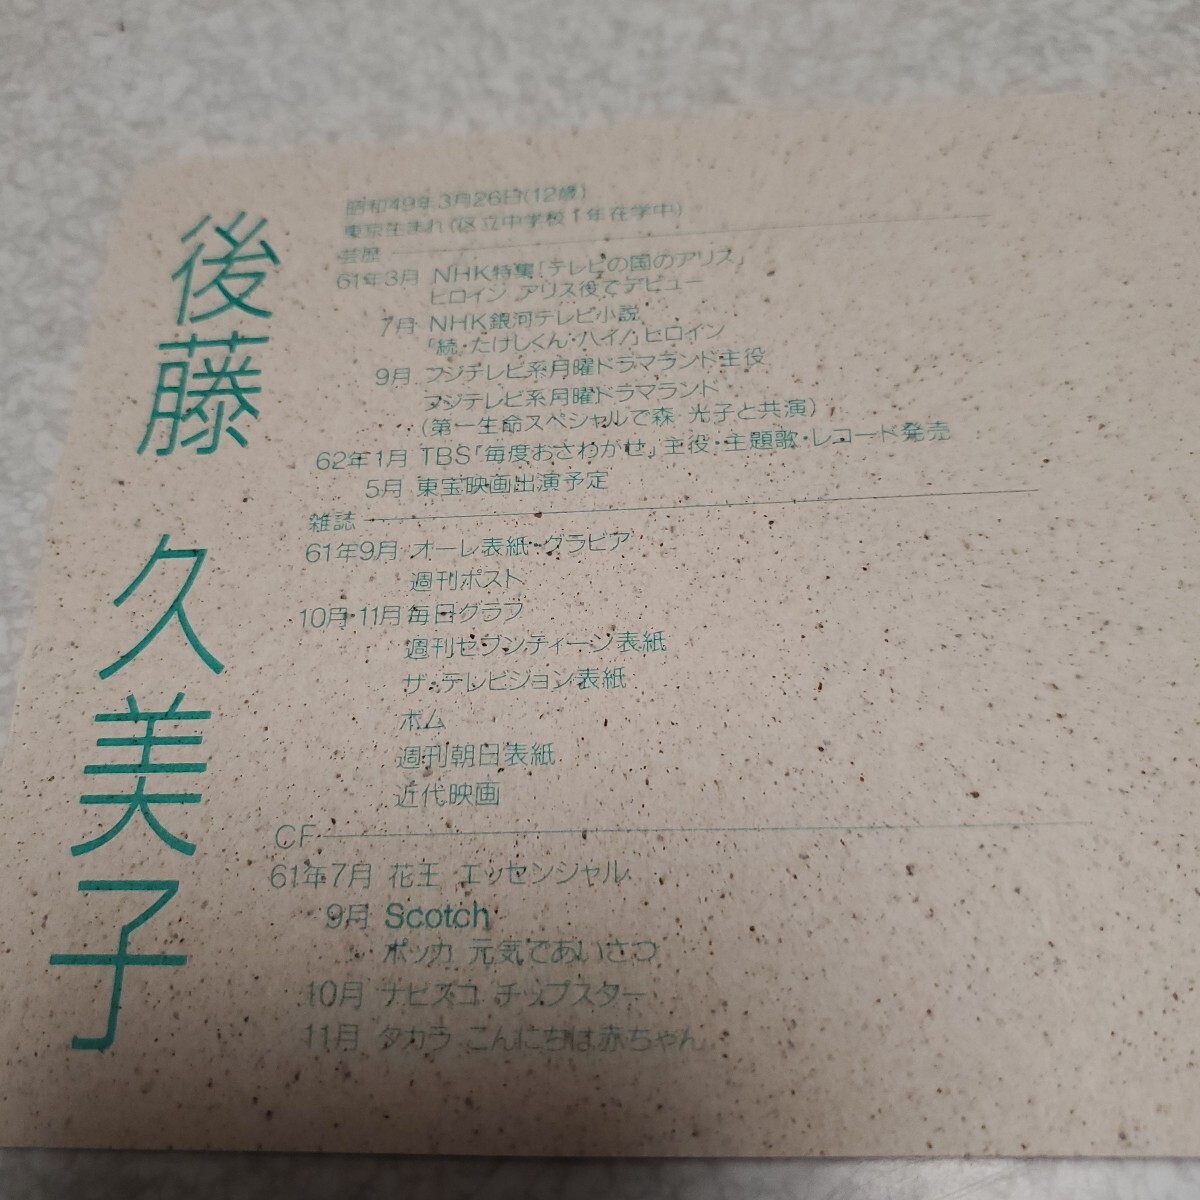 後藤 久美子
昭和49年3月26日(12歳)
東京生まれ(区立中学校1年在学中)
芸歴
61年3月 NHK特集「テレビの国のアリス」
ヒロイン アリス役でデビュー
7月 NHK銀河テレビ小説
「続・たけしくん・ハイ!」ヒロイン
9月 フジテレビ系月曜ドラマランド主役
フジテレビ系月曜ドラマランド
(第一生命スペシャルで森 光子と共演)
62年1月 TBS「毎度おさわがせ」主役・主題歌・レコード発売
5月 東宝映画出演予定
雑誌
61年9月 オーレ表紙・グラビア
週刊ポスト
10月・11月 毎日グラフ
週刊セブンティーン表紙
ザ・テレビジョン表紙
ボム
週刊朝日表紙
近代映画
CF
61年7月 花王 エッセンシャル
9月 Scotch
ポッカ 元気であいさつ
10月 ナビスコ チップスター
11月 タカラ こんにちは赤ちゃん